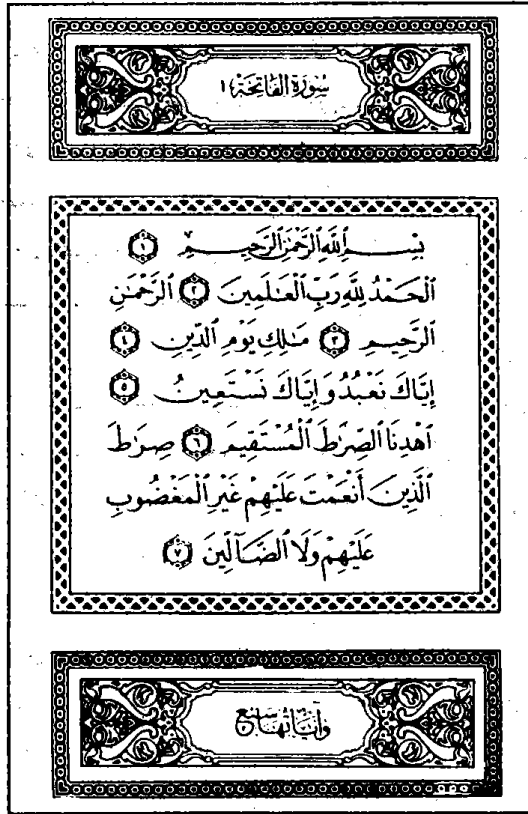 سُورَةُ الفَاتِحَةِ ١
بِسْمِ ٱللَّهِ ٱلرَّحْمَٰنِ ٱلرَّحِيمِ ١
ٱلْحَمْدُ لِلَّهِ رَبِّ ٱلْعَٰلَمِينَ ٢ ٱلرَّحْمَٰنِ
ٱلرَّحِيمِ ٣ مَٰلِكِ يَوْمِ ٱلدِّينِ ٤
إِيَّاكَ نَعْبُدُ وَإِيَّاكَ نَسْتَعِينُ ٥
ٱهْدِنَا ٱلصِّرَٰطَ ٱلْمُسْتَقِيمَ ٦ صِرَٰطَ
ٱلَّذِينَ أَنْعَمْتَ عَلَيْهِمْ غَيْرِ ٱلْمَغْضُوبِ
عَلَيْهِمْ وَلَا ٱلضَّآلِّينَ ٧
وَآيَاتُهَا سَبْع